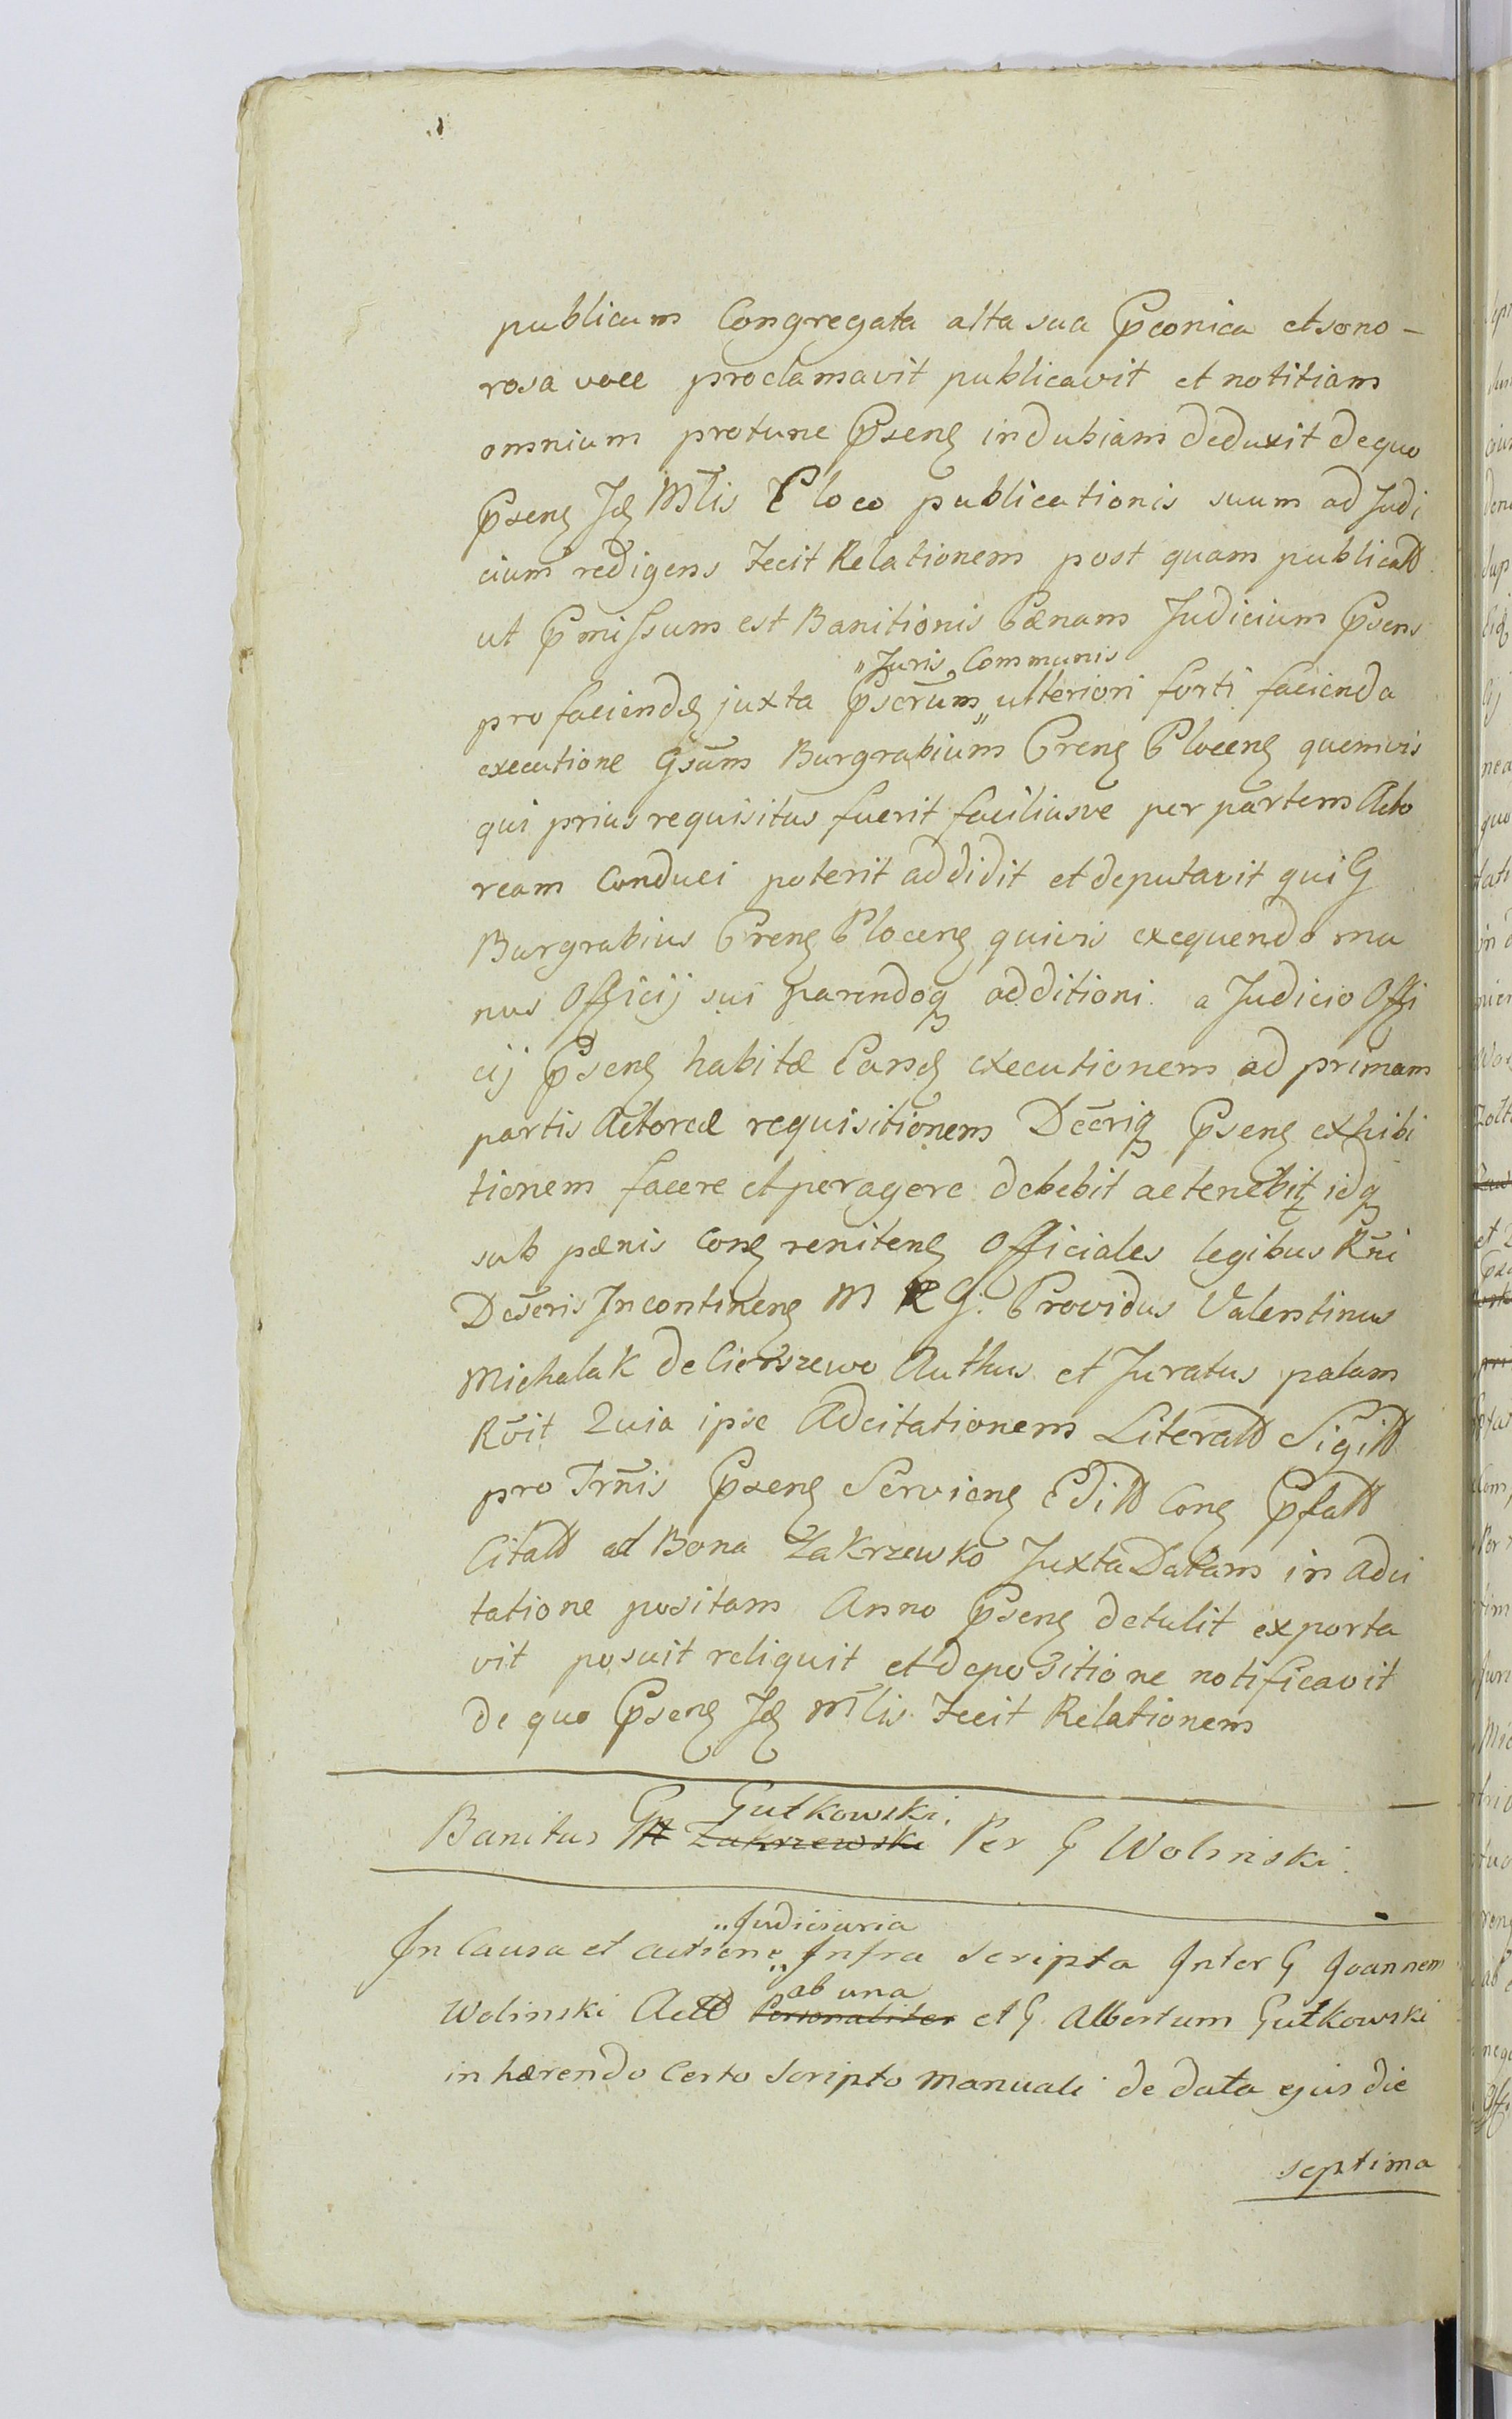 publicum Congregata alta sua Pconica et sono-
rosa voce proclamavit publicavit et notitiam
omnium protunc Psen indubiam deduxit de quo
Psen Id Mtlis E loco publicationis suum ad Judi
cium redigens fecit Relationem post quam publicatt
ut Pmissum est Banitionis Pænam Judicium Psens
"Juris Communis
pro faciendæ juxta Psorum„ ulteriori forti facienda
executione Gsum Burgrabium Cren Plocen quemvis
qui prius requisitus fuerit faciliusve per partem Acto
ream Conduci poterit addidit et deputavit qui G
Burgrabius Cren Plocen quivis exequendo mu
nus Officij sui parendoq additioni a Judicio Offi
cij Psen habitæ Cans executionem ad primam
partis Actoreæ requisitionem Decriq Psen exhibi
tionem facere et peragere debebit ac tenebit idq
sub pænis Con reniten Officiales legibus Rni
Deseris Incontinen M R G. Providus Valentinus
Michalak de Cierszewo Authus et Juratus palam
Roit Quia ipse Adcitationem Literatt Sigitt
pro Trnis Psen Servien Editt Con Pfatt
Citatt ad Bona Zakrzewko Juxta Datam in adci
tatione positam Anno Psen detulit exporta
vit posuit reliquit et depositione notificavit
de quo Psen Id Mtlis fecit Relationem
Gutkowski.
Banitus G Zakrzewski Per G Wolinski.
"Judiciaria
In Causa et actione„ Infra scripta Inter G Joannem
ab una
Wolinski Actt Personaliter et G Albertum Gutkowski
inhærendo Certo Scripto Manuali de data ejus die
septima